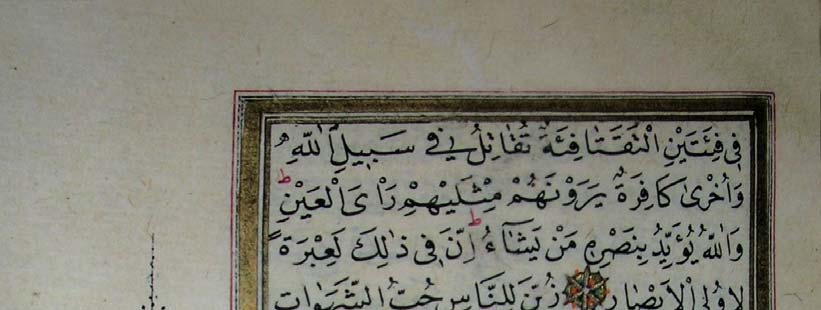 فِى فِئَتَيْنِ الْتَقَتَا فِئَةٌ تُقَاتِلُ فِى سَبِيلِ اللّٰهِ
وَاُخْرٰى كَافِرَةٌ يَرَوْنَهُمْ مِثْلَيْهِمْ رَاْىَ الْعَيْنِ ط
وَاللّٰهُ يُؤَيِّدُ بِنَصْرِهِ مَنْ يَشَٓاءُ ط اِنَّ فِى ذٰلِكَ لَعِبْرَةً
لِاُولِى الْاَبْصَارِ زُيِّنَ لِلنَّاسِ حُبُّ الشَّهَوَاتِ